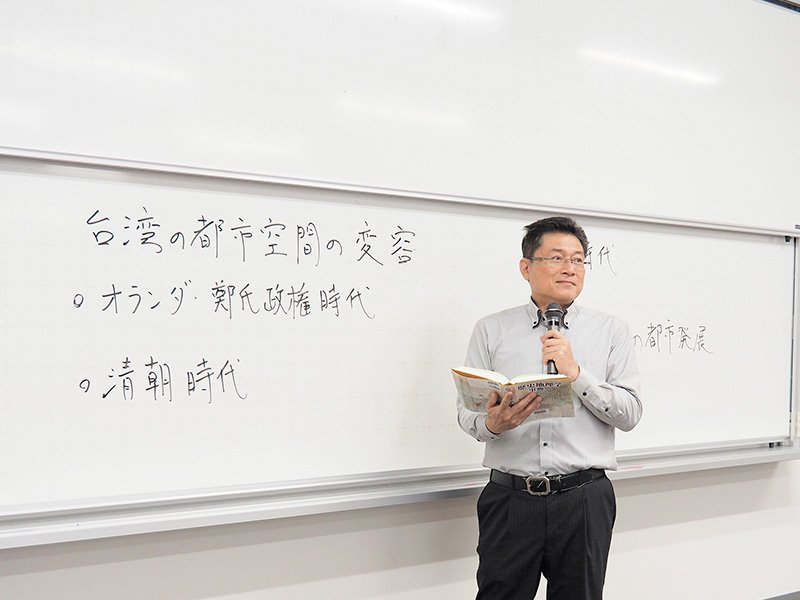 台湾の都市空間の変容
。オランダ・鄭氏政権時代
。清朝時代
時代
の都市発展
歴史地理学